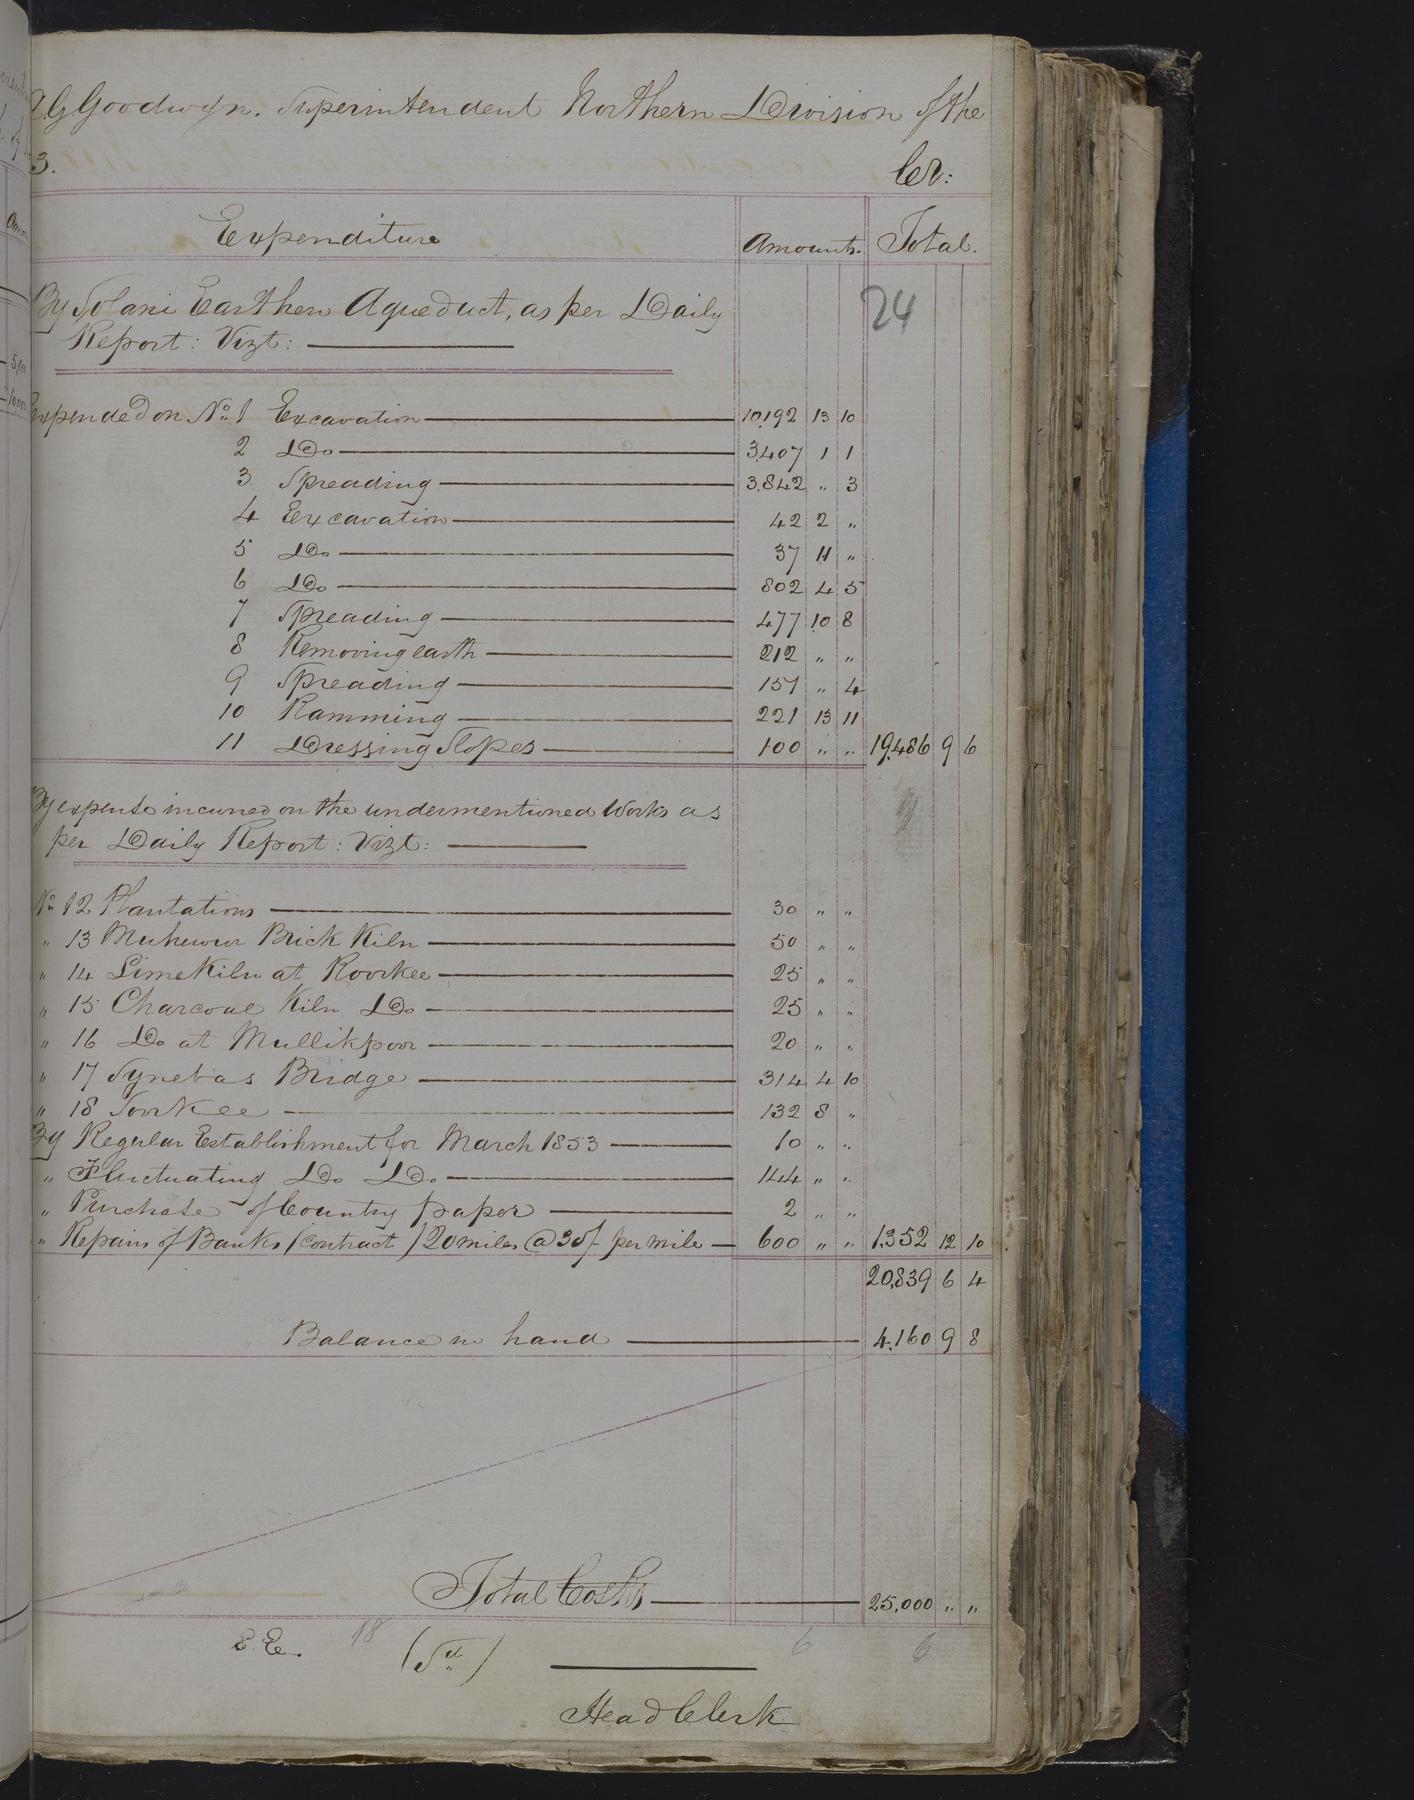 G Goodwyn. Superintendent Northern Division of the
3. Cr:
Expenditure Amounts. Total.
24
By Solani Earthen Aqueduct, as per Daily
Report: Vizt:
Expended on No. 1 Excavation 10,192 13 10
2 Do 3,407 1 1
3 Spreading 3,842 " 3
4 Excavation 42 2 "
5 Do 37 11 "
6 Do 802 4 5
7 Spreading 477 10 8
8 Removing earth 212 " "
9 Spreading 151 " 4
10 Ramming 221 13 11
11 Dressing Slopes 100 " " 19,486 9 6
By expense incurred on the undermentioned Works as
per Daily Report: Vizt:
No. 12 Plantations 30 " "
" 13 Muhewur Brick Kiln 50 " "
" 14 Lime Kiln at Roorkee 25 " "
" 15 Charcoal Kiln Do 25 " "
" 16 Do at Mullikpoor 20 " "
" 17 Synebas Bridge 314 4 10
" 18 132 8 "
By Regular Establishment for March 1853 10 " "
" Fluctuating Do Do 144 " "
" Purchase of Country paper 2 " "
" Repairs of Banks (contract) 20 miles @ 30/- per mile 600 " " 1,352 12 10
20,839 6 4
Balance in hand 4,160 9 8
Total Co's Rs 25,000 " "
E. E. 18 (Sd) 6 6
Head Clerk